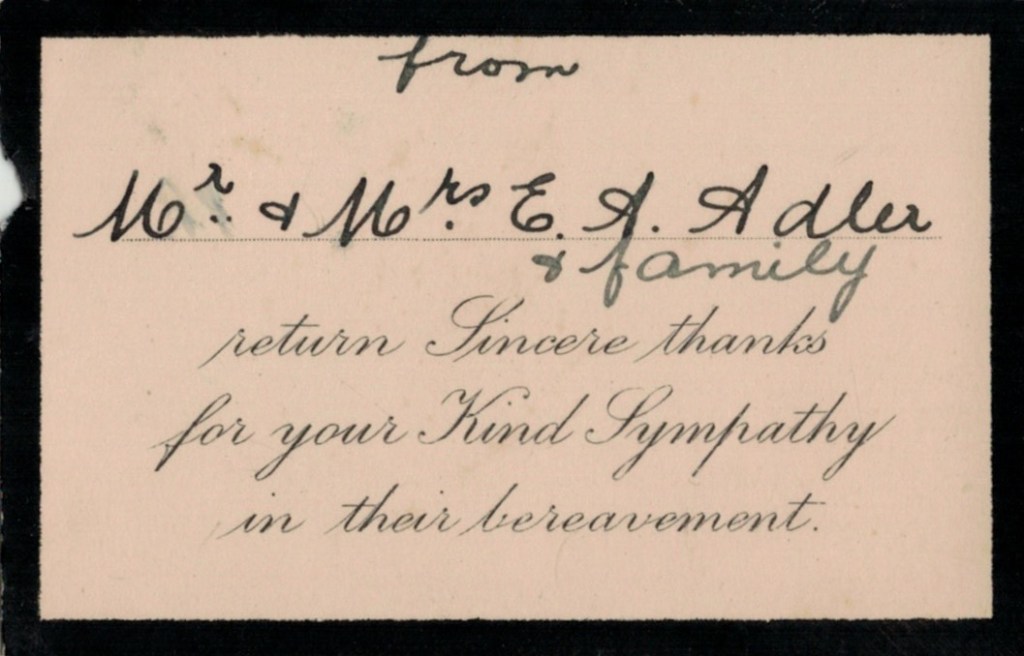 from
Mr. & Mrs. E. A. Adler
& family
return Sincere thanks
for your Kind Sympathy
in their bereavement.